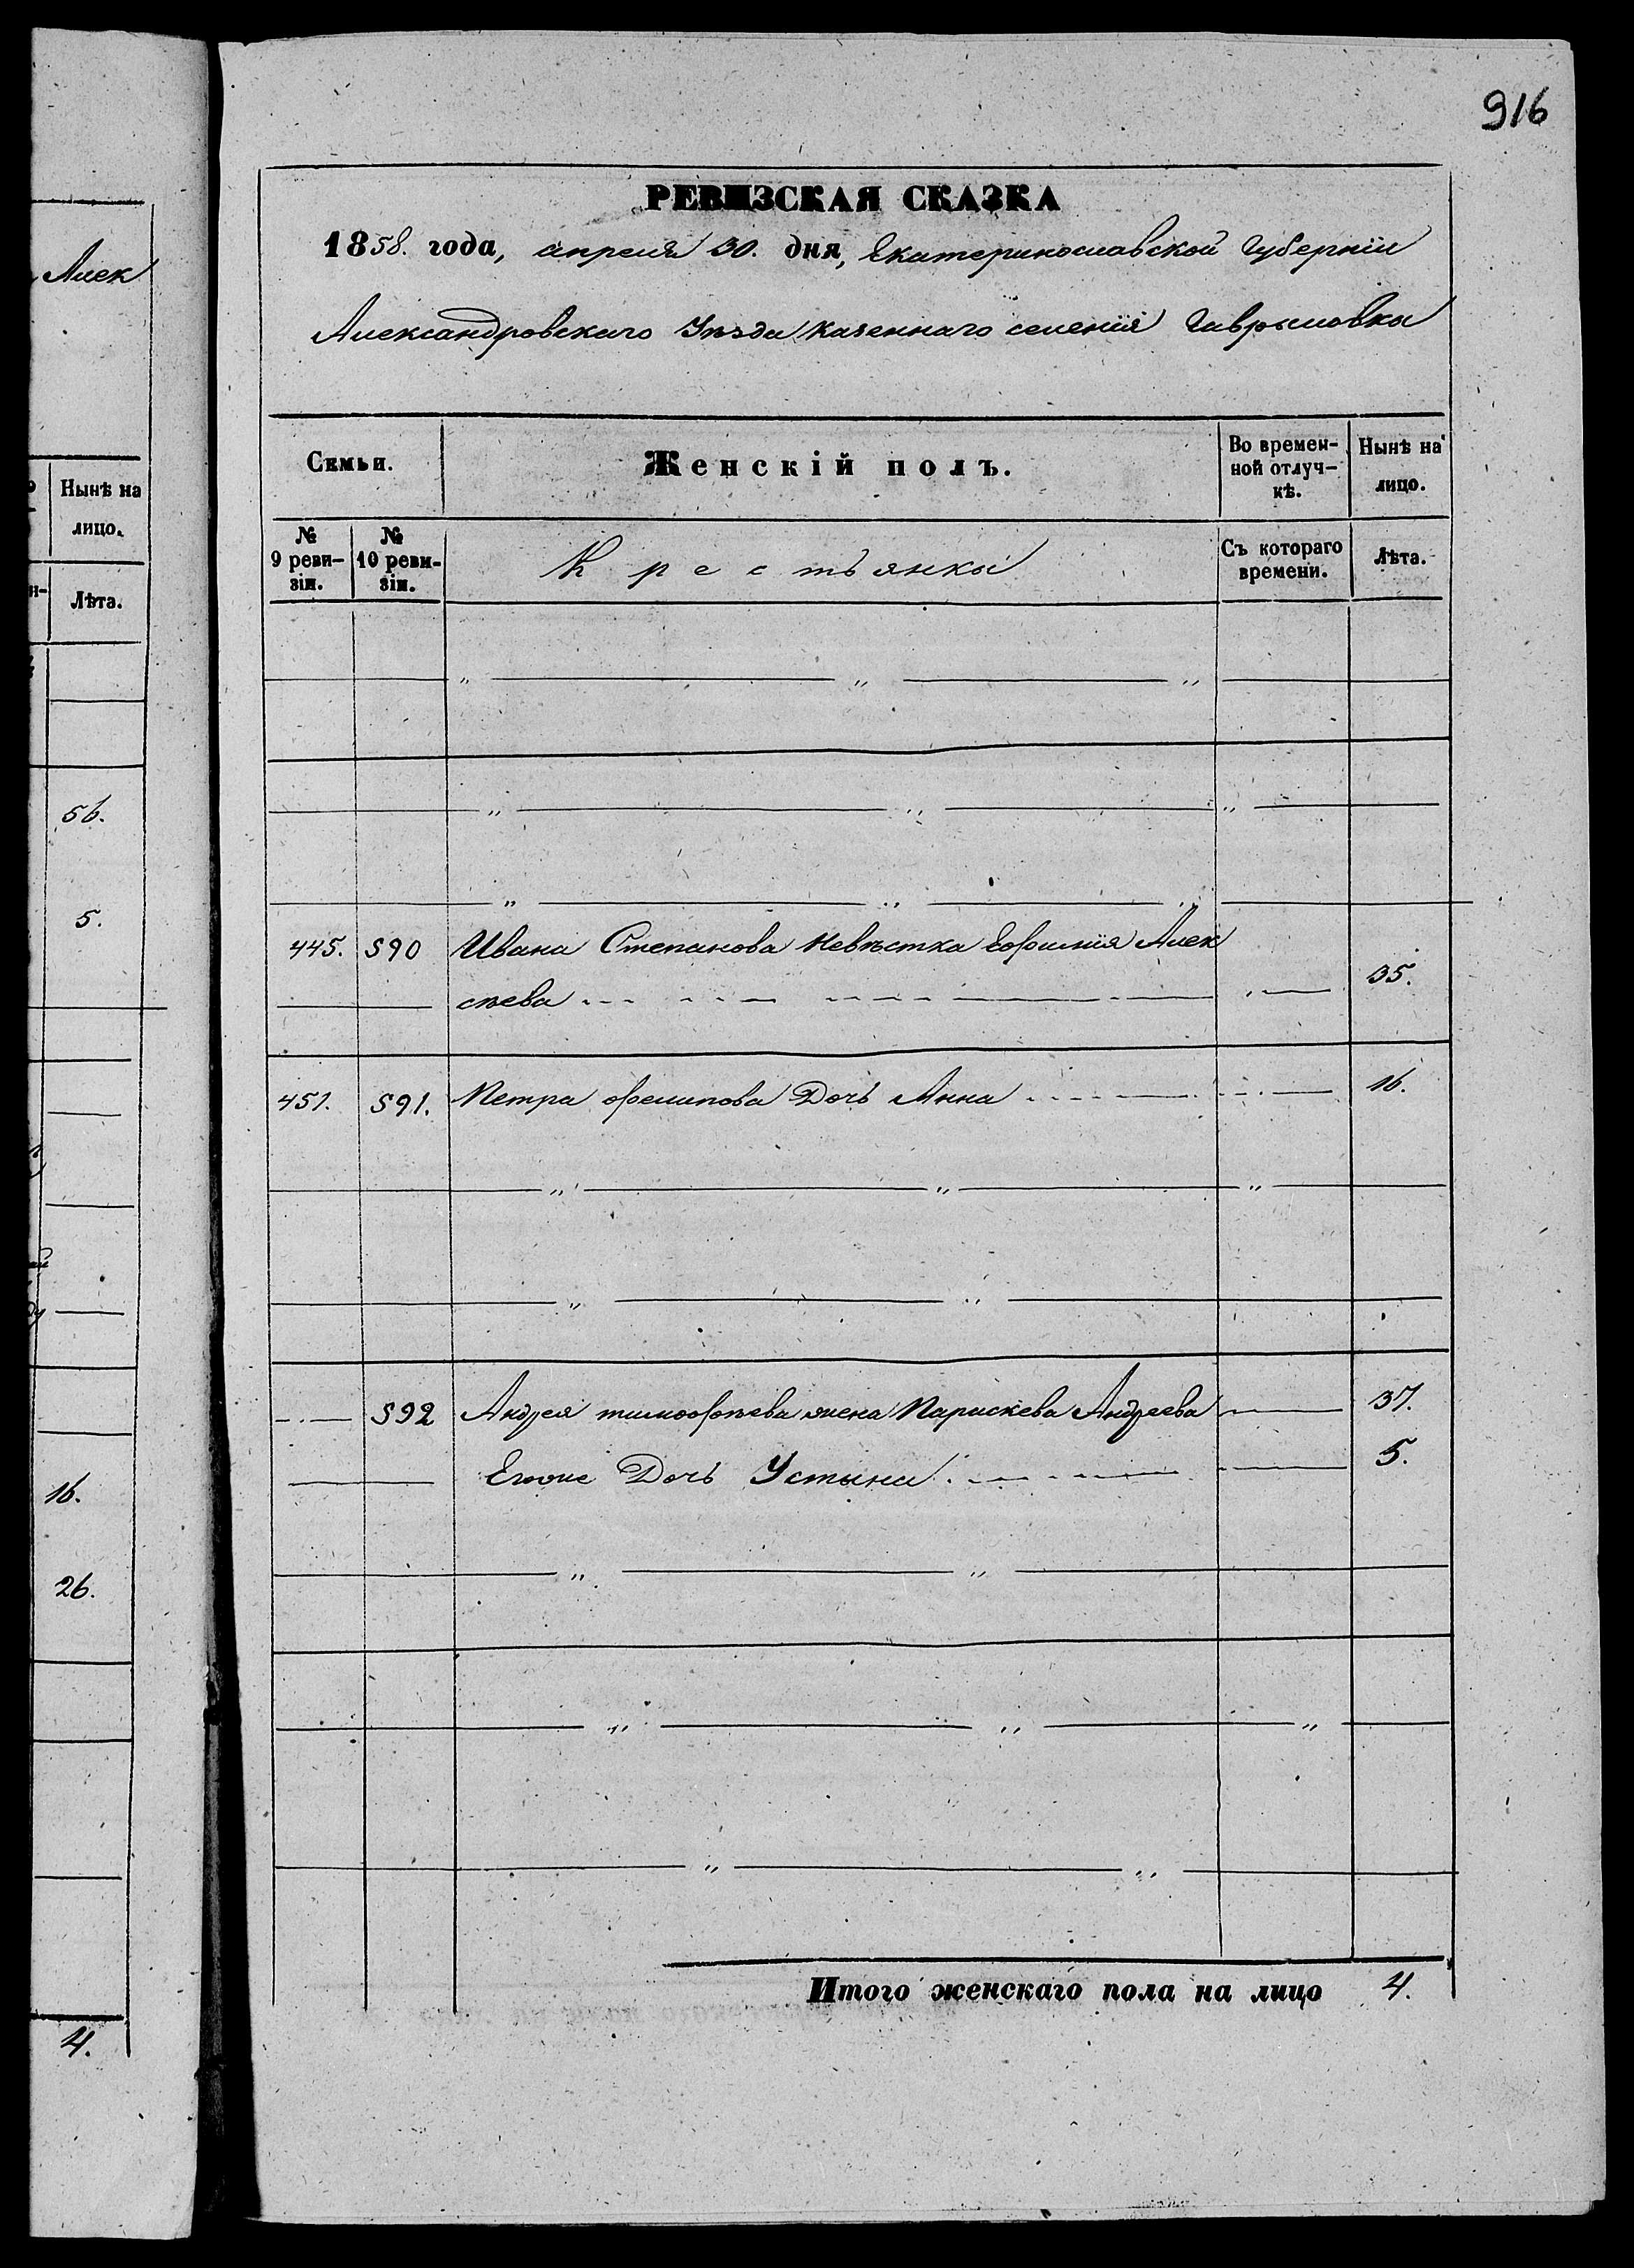 916
РЕВИЗСКАЯ СКАЗКА
1858. года, апреля 30. дня, Екатеринославской Губерніи
Александровскаго Уѣзда казеннаго селенія Гавриловки
Семьи.
Женскій полъ.
Во времен-
ной отлуч-
кѣ.
Нынѣ на
лицо.
№
9 реви-
зіи.
№
10 реви-
зіи.
Крестьянки
Съ котораго
времени.
Лѣта.
445. 590 Ивана Степанова Невѣстка Ефимія Алек 35.
сѣева
451. 591. Петра Филипова Дочь Анна 16.
592 Андрея тимофѣева жена Параскева Андреева 37.
Егоже Дочь Устина 5.
Итого женскаго пола на лицо 4.
Алек
Нынѣ на
лицо.
Лѣта.
56.
5.
16.
26.
4.